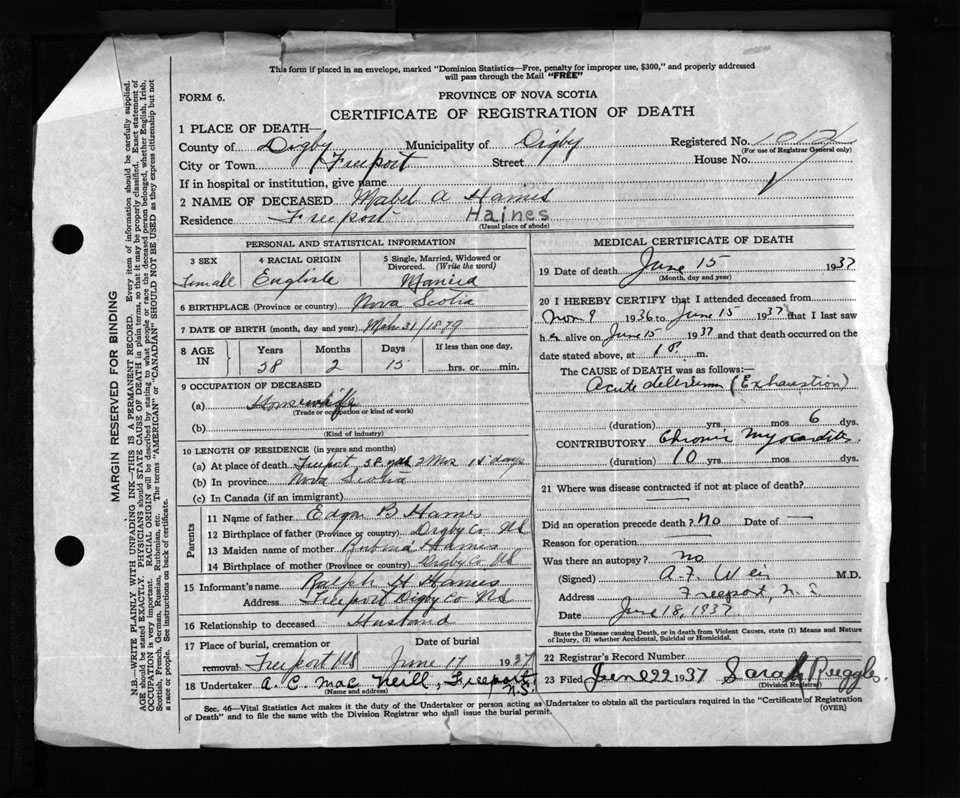 This form if placed in an envelope, marked "Dominion Statistics—Free, penalty for improper use, $300," and properly addressed
will pass through the Mail "FREE"
FORM 6.
PROVINCE OF NOVA SCOTIA
CERTIFICATE OF REGISTRATION OF DEATH
1 PLACE OF DEATH—
County of Digby Municipality of Digby Registered No.
(For use of Registrar General only)
City or Town Freeport Street House No.
If in hospital or institution, give name
2 NAME OF DECEASED Mabel A Haines
Residence Freeport Haines
(Usual place of abode)
PERSONAL AND STATISTICAL INFORMATION
3 SEX 4 RACIAL ORIGIN 5 Single, Married, Widowed or Divorced. (Write the word)
Female English Married
6 BIRTHPLACE (Province or country) Nova Scotia
7 DATE OF BIRTH (month, day and year) Mch 31/1879
8 AGE IN Years Months Days If less than one day,
58 2 15 hrs. or min.
9 OCCUPATION OF DECEASED
(a) Housewife
(Trade or occupation or kind of work)
(b)
(Kind of industry)
10 LENGTH OF RESIDENCE (in years and months)
(a) At place of death Freeport 58 2 Mos 15 days
(b) In province Nova Scotia
(c) In Canada (if an immigrant)
Parents
11 Name of father Edgar B Haines
12 Birthplace of father (Province or country) Digby Co. NS
13 Maiden name of mother Haines
14 Birthplace of mother (Province or country) Digby Co NS
15 Informant's name Ralph H Haines
Address Freeport Digby Co NS
16 Relationship to deceased Husband
17 Place of burial, cremation or removal Freeport NS Date of burial June 17 1937
18 Undertaker A. C. MacNeill, Freeport, N.S.
(Name and address)
MEDICAL CERTIFICATE OF DEATH
19 Date of death June 15 1937
(Month, day and year)
20 I HEREBY CERTIFY that I attended deceased from
Nov 9 1936 to June 15 1937 that I last saw
her alive on June 15 1937 and that death occurred on the
date stated above, at 1 P. m.
The CAUSE of DEATH was as follows:—
Acute delirium (Exhaustion)
(duration) yrs. mos 6 dys.
CONTRIBUTORY Chronic Myocarditis
(duration) 10 yrs. mos dys.
21 Where was disease contracted if not at place of death?
Did an operation precede death? No Date of —
Reason for operation —
Was there an autopsy? no
(Signed) A. F. Weir M.D.
Address Freeport, N.S
Date June 18, 1937
State the Disease causing Death, or in death from Violent Causes, state (1) Means and Nature of Injury, (2) whether Accidental, Suicidal or Homicidal.
22 Registrar's Record Number
23 Filed June 22 1937 Sarah Ruggles.
(Division Registrar)
Sec. 46—Vital Statistics Act makes it the duty of the Undertaker or person acting as Undertaker to obtain all the particulars required in the "Certificate of Registration
of Death" and to file the same with the Division Registrar who shall issue the burial permit.
(OVER)
MARGIN RESERVED FOR BINDING
N.B.—WRITE PLAINLY WITH UNFADING INK—THIS IS A PERMANENT RECORD. Every item of information should be carefully supplied.
AGE should be stated EXACTLY. PHYSICIANS should STATE CAUSE OF DEATH in plain terms, so that it may be properly classified. Exact statement of
OCCUPATION is very important. RACIAL ORIGIN will be described by stating to what people or race the deceased person belonged, whether English, Irish,
Scottish, French, German, Russian, Ruthenian, etc. The terms "AMERICAN" or "CANADIAN" SHOULD NOT BE USED as they express citizenship but not
a race or people. See instructions on back of certificate.